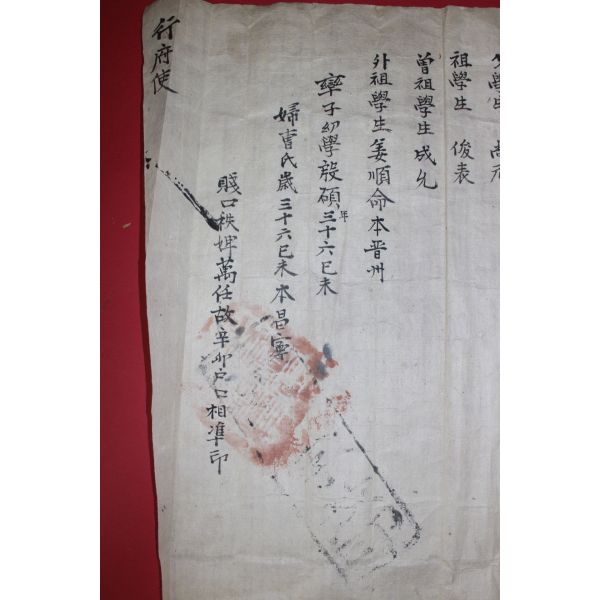 父學生 尚元
祖學生 俊表
曾祖學生 成允
外祖學生姜順命本晋州
率子幼學殷碩年三十六己未
婦曺氏歲三十六己未本昌寧
賤口秩婢萬任故辛卯戶口相準印
行府使